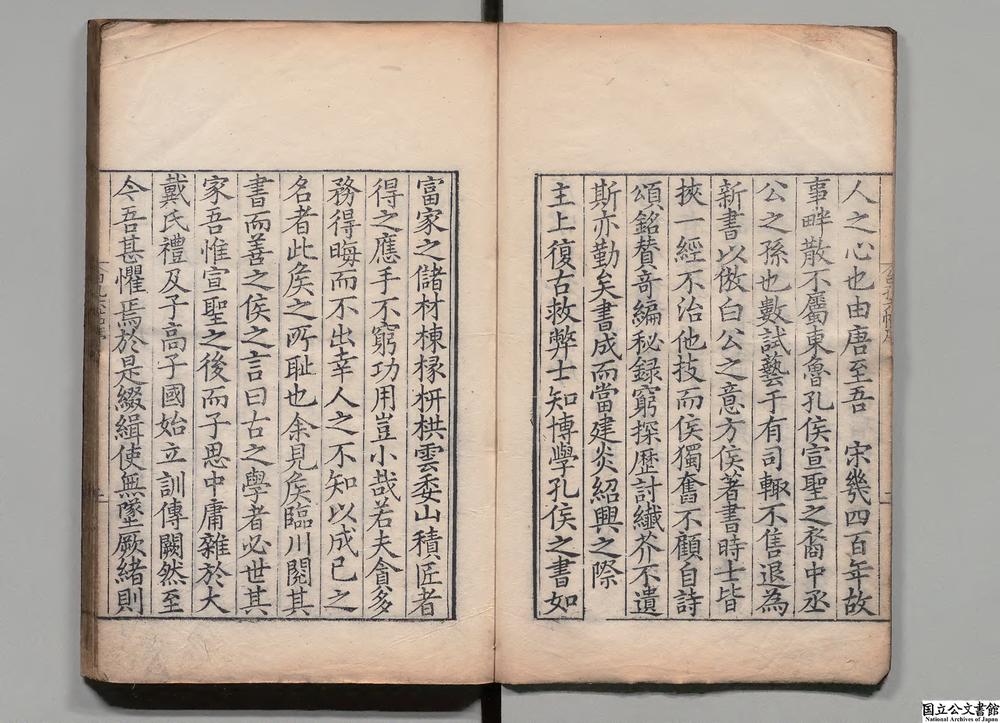 人之心也由唐至吾　宋幾四百年故
事畔散不屬東魯孔侯宣聖之裔中丞
公之孫也數試藝于有司輙不售退為
新書以倣白公之意方侯著書時士皆
挾一經不治他技而侯獨奮不顧自詩
頌銘賛竒編秘録窮探歴討纎芥不遺
斯亦勤矣書成而當建炎紹興之際
主上復古救弊士知博學孔侯之書如
富家之儲材棟椽枅栱雲委山積匠者
得之應手不窮功用豈小哉若夫貪多
務得晦而不出幸人之不知以成已之
名者此矦之所耻也余見矦臨川閱其
書而善之侯之言曰古之學者必世其
家吾惟宣聖之後而子思中庸雜於大
戴氏禮及子高子國始立訓傳闕然至
今吾甚懼焉於是綴緝使無墜厥緒則
国立公文書館
National Archives of Japan